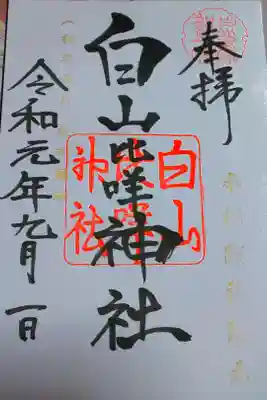 奉拝
白山比咩神社
白山
比咩
神社
令和元年九月一日